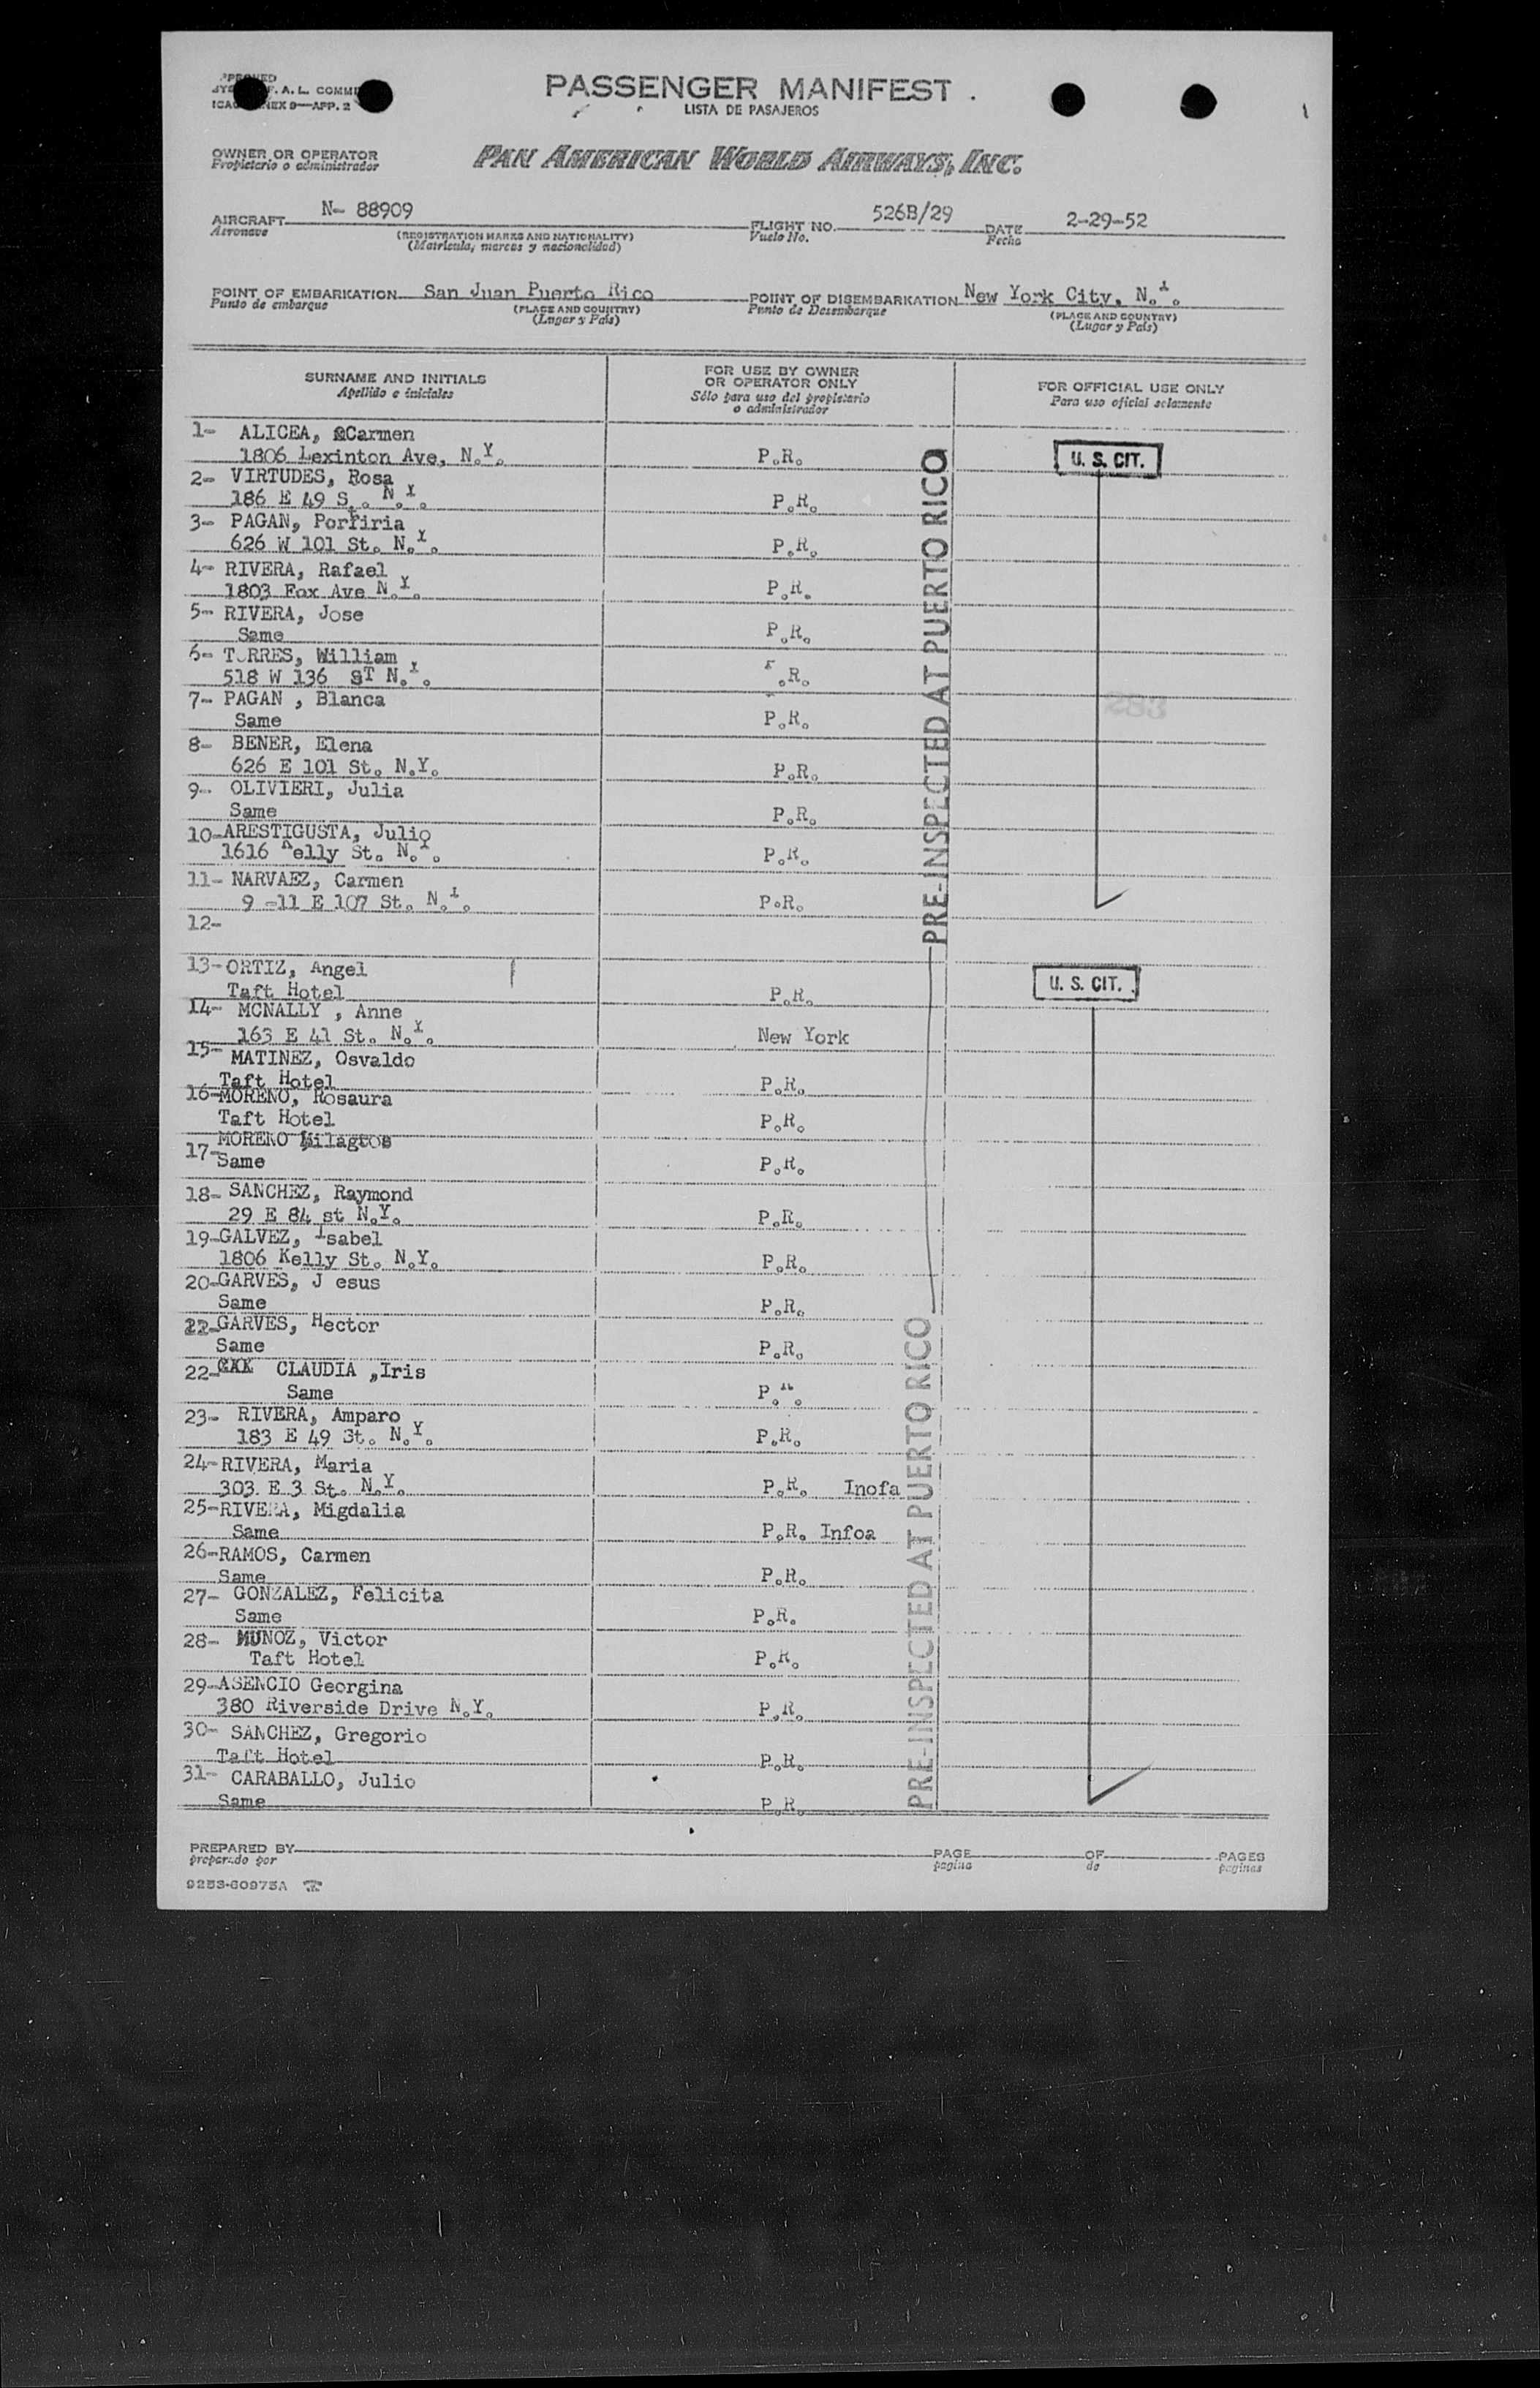 PASSENGER MANIFEST .
LISTA DE PASAJEROS
F. A. L.
APP. 2
OWNER OR OPERATOR
Propietario o administrador
PAN AMERICAN WORLD AIRWAYS, INC.
AIRCRAFT N- 88909 FLIGHT NO. 526B/29 DATE 2-29-52
Aeronave Vuelo No. Fecha
(REGISTRATION MARKS AND NATIONALITY)
(Matricula, marcas y nacionalidad)
POINT OF EMBARKATION San Juan Puerto Rico POINT OF DISEMBARKATION New York City, N.Y.
Punto de embarque (PLACE AND COUNTRY) Punto de Desembarque (PLACE AND COUNTRY)
(Lugar y Pais) (Lugar y Pais)
SURNAME AND INITIALS
Apellido e iniciales
FOR USE BY OWNER
OR OPERATOR ONLY
Sólo para uso del propietario
o administrador
FOR OFFICIAL USE ONLY
Para uso oficial solamente
1- ALICEA, Carmen
1806 Lexinton Ave, N.Y. P.R. U. S. CIT.
2- VIRTUDES, Rosa
186 E 49 S . N.Y. P.R.
3- PAGAN, Porfiria
626 W 101 St. N.Y. P.R.
4- RIVERA, Rafael
1803 Fox Ave N.Y. P.R.
5- RIVERA, Jose
Same P.R.
6- TORRES, William
518 W 136 ST N.Y. P.R.
7- PAGAN , Blanca
Same P.R.
283
8- BENER, Elena
626 E 101 St. N.Y. P.R.
9- OLIVIERI, Julia
Same P.R.
10-ARESTIGUSTA, Julio
1616 Kelly St. N.Y. P.R.
11- NARVAEZ, Carmen
9 -11 E 107 St. N.Y. P.R.
PRE-INSPECTED AT PUERTO RICO
12-
13-ORTIZ, Angel
Taft Hotel P.R. U. S. CIT.
14- MCNALLY , Anne
163 E 41 St. N.Y. New York
15- MATINEZ, Osvaldo
Taft Hotel P.R.
16-MORENO, Rosaura
Taft Hotel P.R.
17-MORENO Milagtos
Same P.R.
18- SANCHEZ, Raymond
29 E 84 st N.Y. P.R.
19-GALVEZ, Isabel
1806 Kelly St. N.Y. P.R.
20-GARVES, J esus
Same P.R.
22-GARVES, Hector
Same P.R.
22- CLAUDIA ,Iris
Same P.R.
23- RIVERA, Amparo
183 E 49 St. N.Y. P.R.
24-RIVERA, Maria
303 E 3 St. N.Y. P.R. Inofa
25-RIVERA, Migdalia
Same P.R. Infoa
26-RAMOS, Carmen
Same P.R.
27- GONZALEZ, Felicita
Same P.R.
28- MUNOZ, Victor
Taft Hotel P.R.
29-ASENCIO Georgina
380 Riverside Drive N.Y. P.R.
30- SANCHEZ, Gregorio
Taft Hotel P.R.
31- CARABALLO, Julio
Same P.R.
PRE-INSPECTED AT PUERTO RICO
PREPARED BY PAGE OF PAGES
preparado por pagina de paginas
9253-60975A